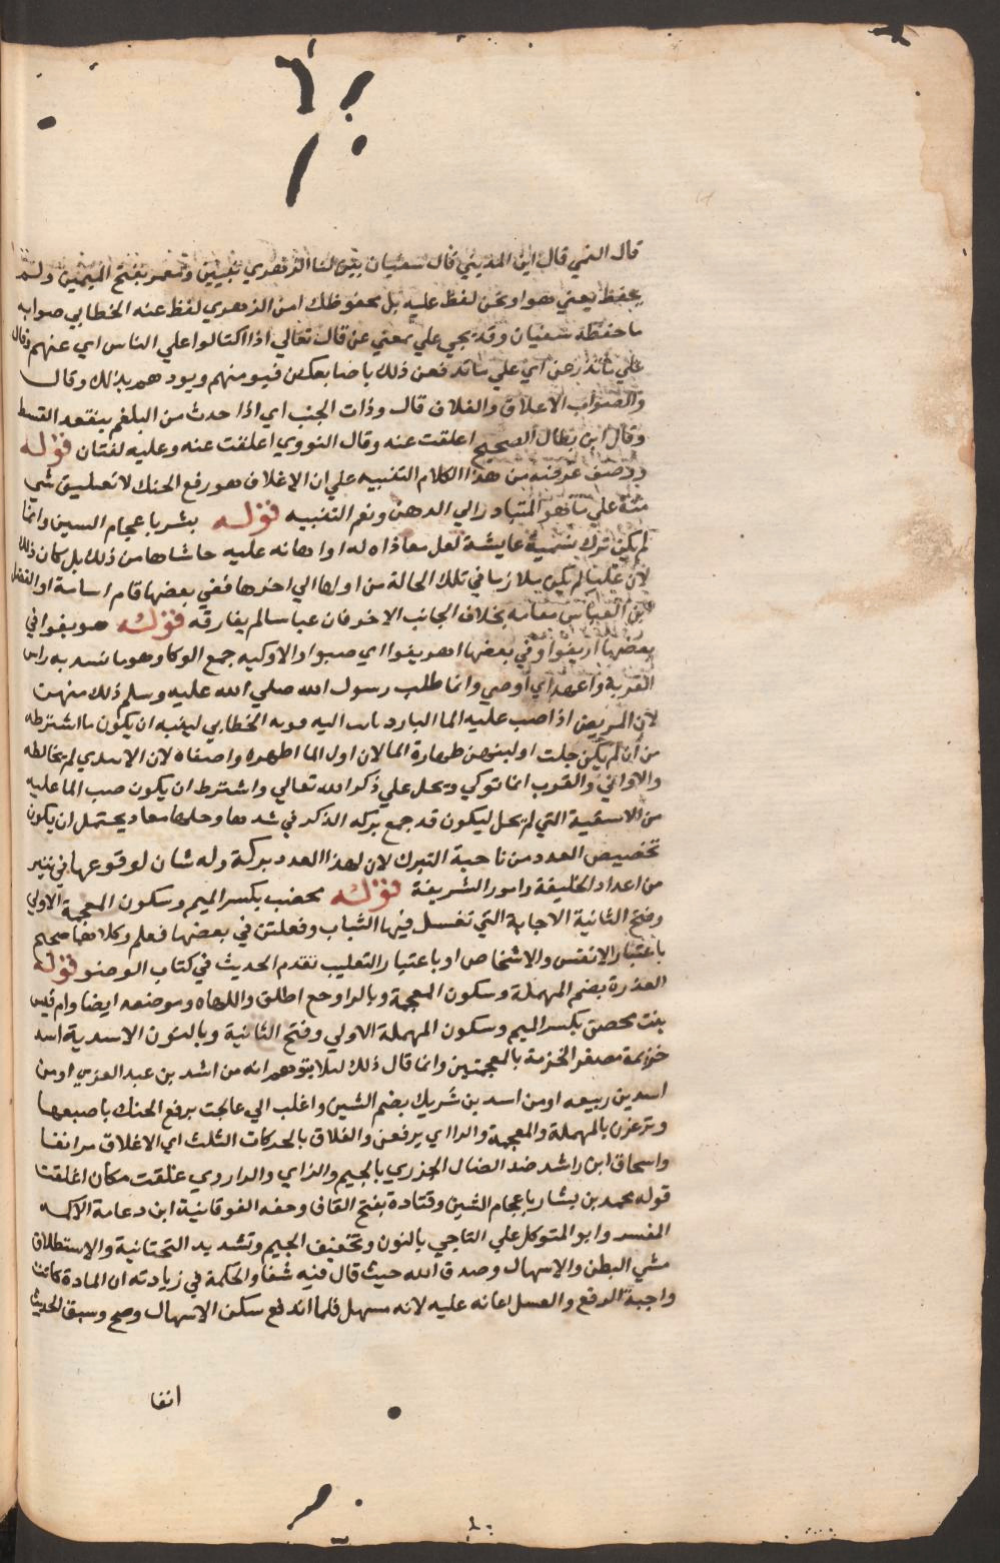 قال العيني قال ابن المديني قال سفيان بين لنا الزهري ثنتين ومعمر بفتح الميمين ولم
يحفظ يعني هو اونحن لفظ عليه بل محفوظك امن الزهري لفظ عنه الخطابي صوابه
ما حفظه سفيان وقد يجي علي بمعني عن قال تعالي اذا اكتالوا علي الناس اي عنهم وقال
علي اي علي ما تدفعن ذلك باصابعكن فيومنهم ويودهم بذلك وقال
والصواب الاعلاق والغلاق قال وذات الجنب اي اذا حدث من البلغم ينفعه القسط
وقال ابن بطال الصحيح اعلقت عنه وقال النووي اعلقت عنه وعليه لغتان قوله
ووصف عرفنه من هذا الكلام التنبيه علي ان الاغلاق هو رفع الحنك لا تعليق شي
منه علي ما هو المتبادر الي الدهن ونعم التنبيه قوله بشر باعجام السين وانما
لم يكن ترك تسمية عايشة لعل معاذاه له او اهانه عليه حاشاها من ذلك بل كان ذلك
لان عليا لم يكن ملازما في تلك الحالة من اولها الي اخرها ففي بعضها قام اسامة او الفضل
بن العباس مقامه بخلاف الجانب الاخر فان عباسا لم يفارقه قوله هريقوا في
بعضها اريقوا وفي بعضها اهريقوا اي صبوا والاوكيه جمع الوكا وهو ما يشد به راس
القربة واعهد اي اوصي وانما طلب رسول الله صلي الله عليه وسلم ذلك منهن
لان المريض اذا صب عليه الما البارد اليه قوته الخطابي ليشبه ان يكون ما اشترطه
من ان لم يكن حلت اوكيتهن طهارة الما لان اول الما اطهره واصفاه لان الايدي لم تخالطه
والاواني والقرب انما توكي وتحل علي ذكر الله تعالي واشترط ان يكون صب الما عليه
من الاسقية التي لم تحل ليكون قد جمع بركه الذكر في شدها وحلها معا ويحتمل ان يكون
تخصيص العدد من ناحية التبرك لان لهذا العدد بركة وله شان لوقوعها في كثير
من اعداد الخليقة وامور الشريفة قوله مخضب بكسر الميم وسكون المعجمة الاولي
وفتح الثانية الاجابة التي تغسل فيها الثياب وفعلتن في بعضها فعلم وكلاهما صحيح
باعتبار الانفس والاشخاص او باعتبار التغليب تقدم الحديث في كتاب الوضو قوله
العذرة بضم المهملة وسكون المعجمة وبالرا وجع الحلق واللهاه وموضعه ايضا وام قيس
بنت محصن بكسر الميم وسكون المهملة الاولي وفتح الثانية وبالنون الاسدية اسد
خزيمة مصغر الخزمة بالمعجمتين وانما قال ذلك ليلا يتوهم انه من اسد بن عبد العزي او من
اسد بن ربيعه او من اسد بن شريك بضم الشين واعلب الي عالجت برفع الحنك باصبعها
وتزغرن بالمهملة والمعجمة والرا اي يرفعن والغلاق بالحركات الثلث اي الاغلاق مر انفا
واسحاق ابن راشد ضد الضال الجزري بالجيم والزاي والراوي علقت مكان اغلقت
قوله محمد بن بشار باعجام الشين وقتادة بفتح القاف وخفه الفوقانية ابن دعامة الاكمه
المفسر وابو المتوكل علي الناجي بالنون وتخفيف الجيم وتشديد التحتانية والاستطلاق
مشي البطن والاسهال وصدق الله حيث قال فيه شفا والحكمة في زيادته ان المادة كانت
واجبة الدفع والعسل اعانه عليه لانه مسهل فلما اندفع سكن الاسهال وصح وسبق الحديث
انفا